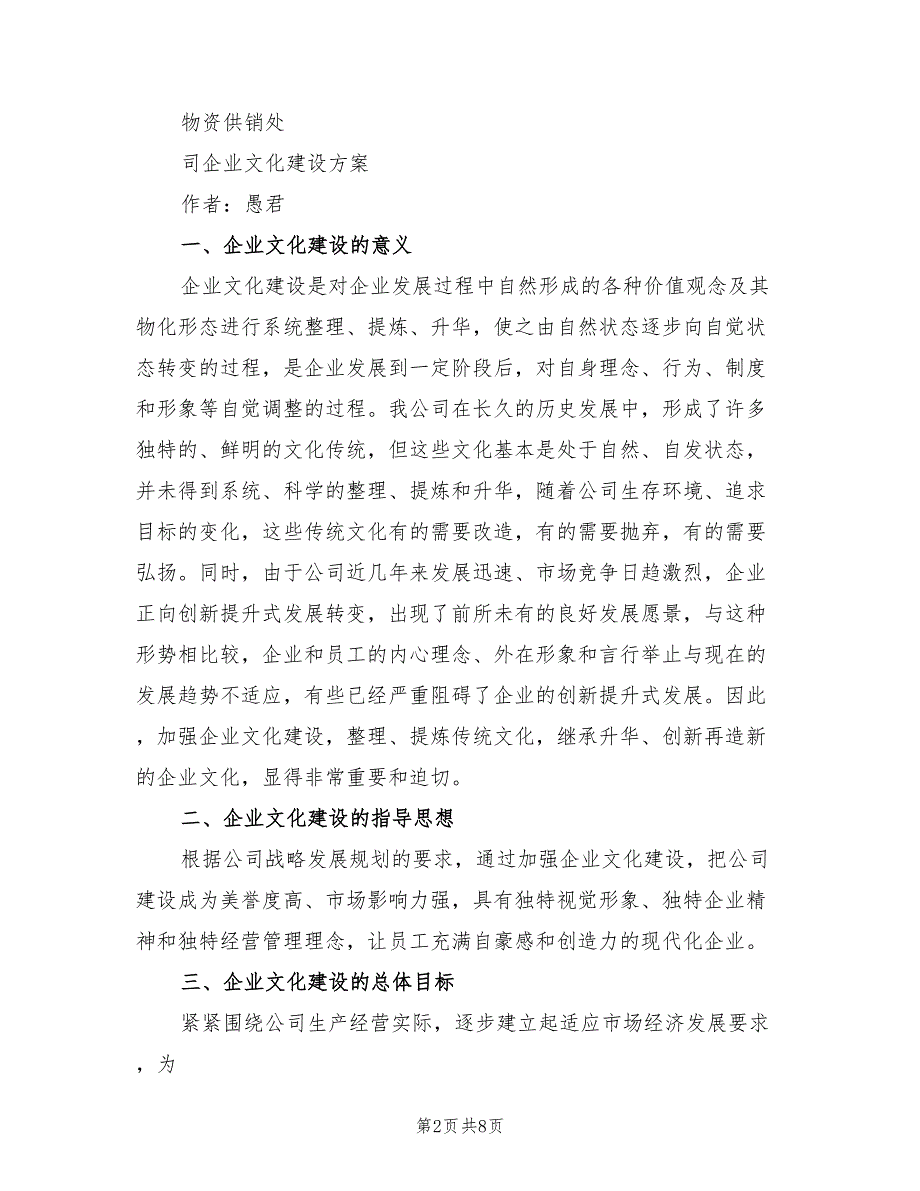 物资供销处
司企业文化建设方案
作者：愚君
一、企业文化建设的意义
企业文化建设是对企业发展过程中自然形成的各种价值观念及其
物化形态进行系统整理、提炼、升华，使之由自然状态逐步向自觉状
态转变的过程，是企业发展到一定阶段后，对自身理念、行为、制度
和形象等自觉调整的过程。我公司在长久的历史发展中，形成了许多
独特的、鲜明的文化传统，但这些文化基本是处于自然、自发状态，
并未得到系统、科学的整理、提炼和升华，随着公司生存环境、追求
目标的变化，这些传统文化有的需要改造，有的需要抛弃，有的需要
弘扬。同时，由于公司近几年来发展迅速、市场竞争日趋激烈，企业
正向创新提升式发展转变，出现了前所未有的良好发展愿景，与这种
形势相比较，企业和员工的内心理念、外在形象和言行举止与现在的
发展趋势不适应，有些已经严重阻碍了企业的创新提升式发展。因此
，加强企业文化建设，整理、提炼传统文化，继承升华、创新再造新
的企业文化，显得非常重要和迫切。
二、企业文化建设的指导思想
根据公司战略发展规划的要求，通过加强企业文化建设，把公司
建设成为美誉度高、市场影响力强，具有独特视觉形象、独特企业精
神和独特经营管理理念，让员工充满自豪感和创造力的现代化企业。
三、企业文化建设的总体目标
紧紧围绕公司生产经营实际，逐步建立起适应市场经济发展要求
，为
第2页 共8页